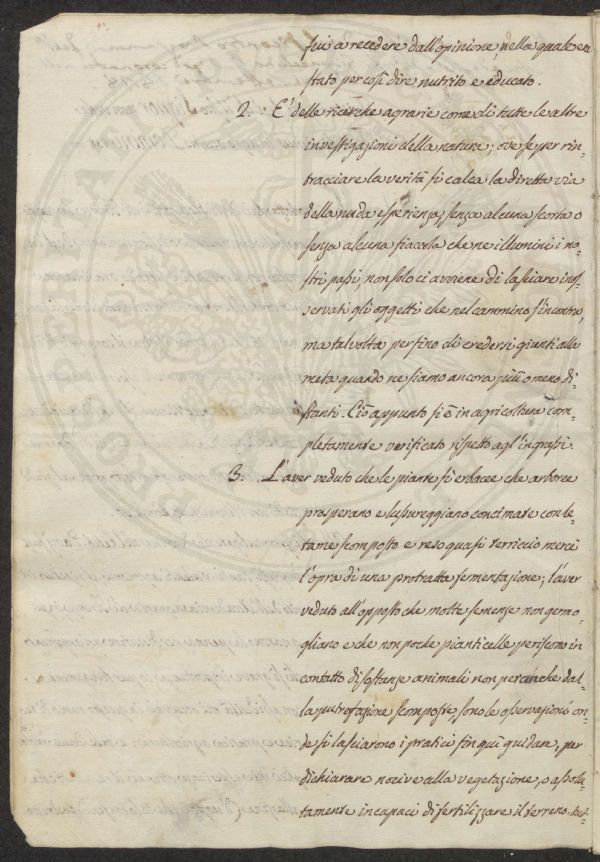 fui a recedere dall'opinione, nella quale era
stato per così dire nutrito e educato.
2. E' delle ricerche agrarie come di tutte le altre
investigazioni della natura; ove se per rin=
tracciare la verità si calca la diretta via
della nuda esperienza, senza alcuna scorta o
senza alcuna fiaccola che ne illumini i no=
stri passi, non solo ci avviene di lasciare inos=
servati gli oggetti che nel cammino s'incontra,
ma talvolta perfino di credersi giunti alla
meta quando ne siamo ancora più o meno di=
stanti. Ciò appunto si è in agricoltura com=
pletamente verificato rispetto agl'ingrassi.
3. L'aver veduto che le piante sì erbacee che arboree
prosperano e lussureggiano concimate con le=
tame scomposto e reso quasi terriccio mercè
l'opra di una protratta fermentazione; l'aver
veduto all'opposto che molte semenze non germo=
gliano e che non poche pianticelle periscono in
contatto di sostanze animali non peranche dal=
la putrefazione scomposte, sono le osservazioni on=
de si lasciarono i pratici fin quì guidare, per
dichiarare nocive alla vegetazione, o assolu=
tamente incapaci di fertilizzare il terreno